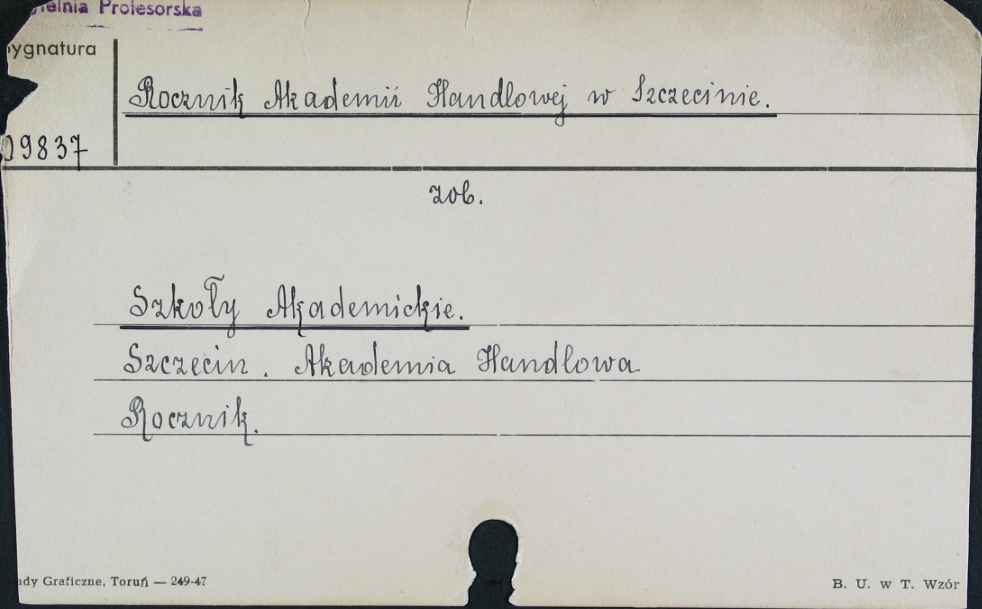 ielnia Profesorska
ygnatura
Rocznik Akademii Handlowej w Szczecinie.
09837
zob.
Szkoły Akademickie.
Szczecin. Akademia Handlowa
Rocznik.
ady Graficzne, Toruń — 249-47
B. U. w T. Wzór